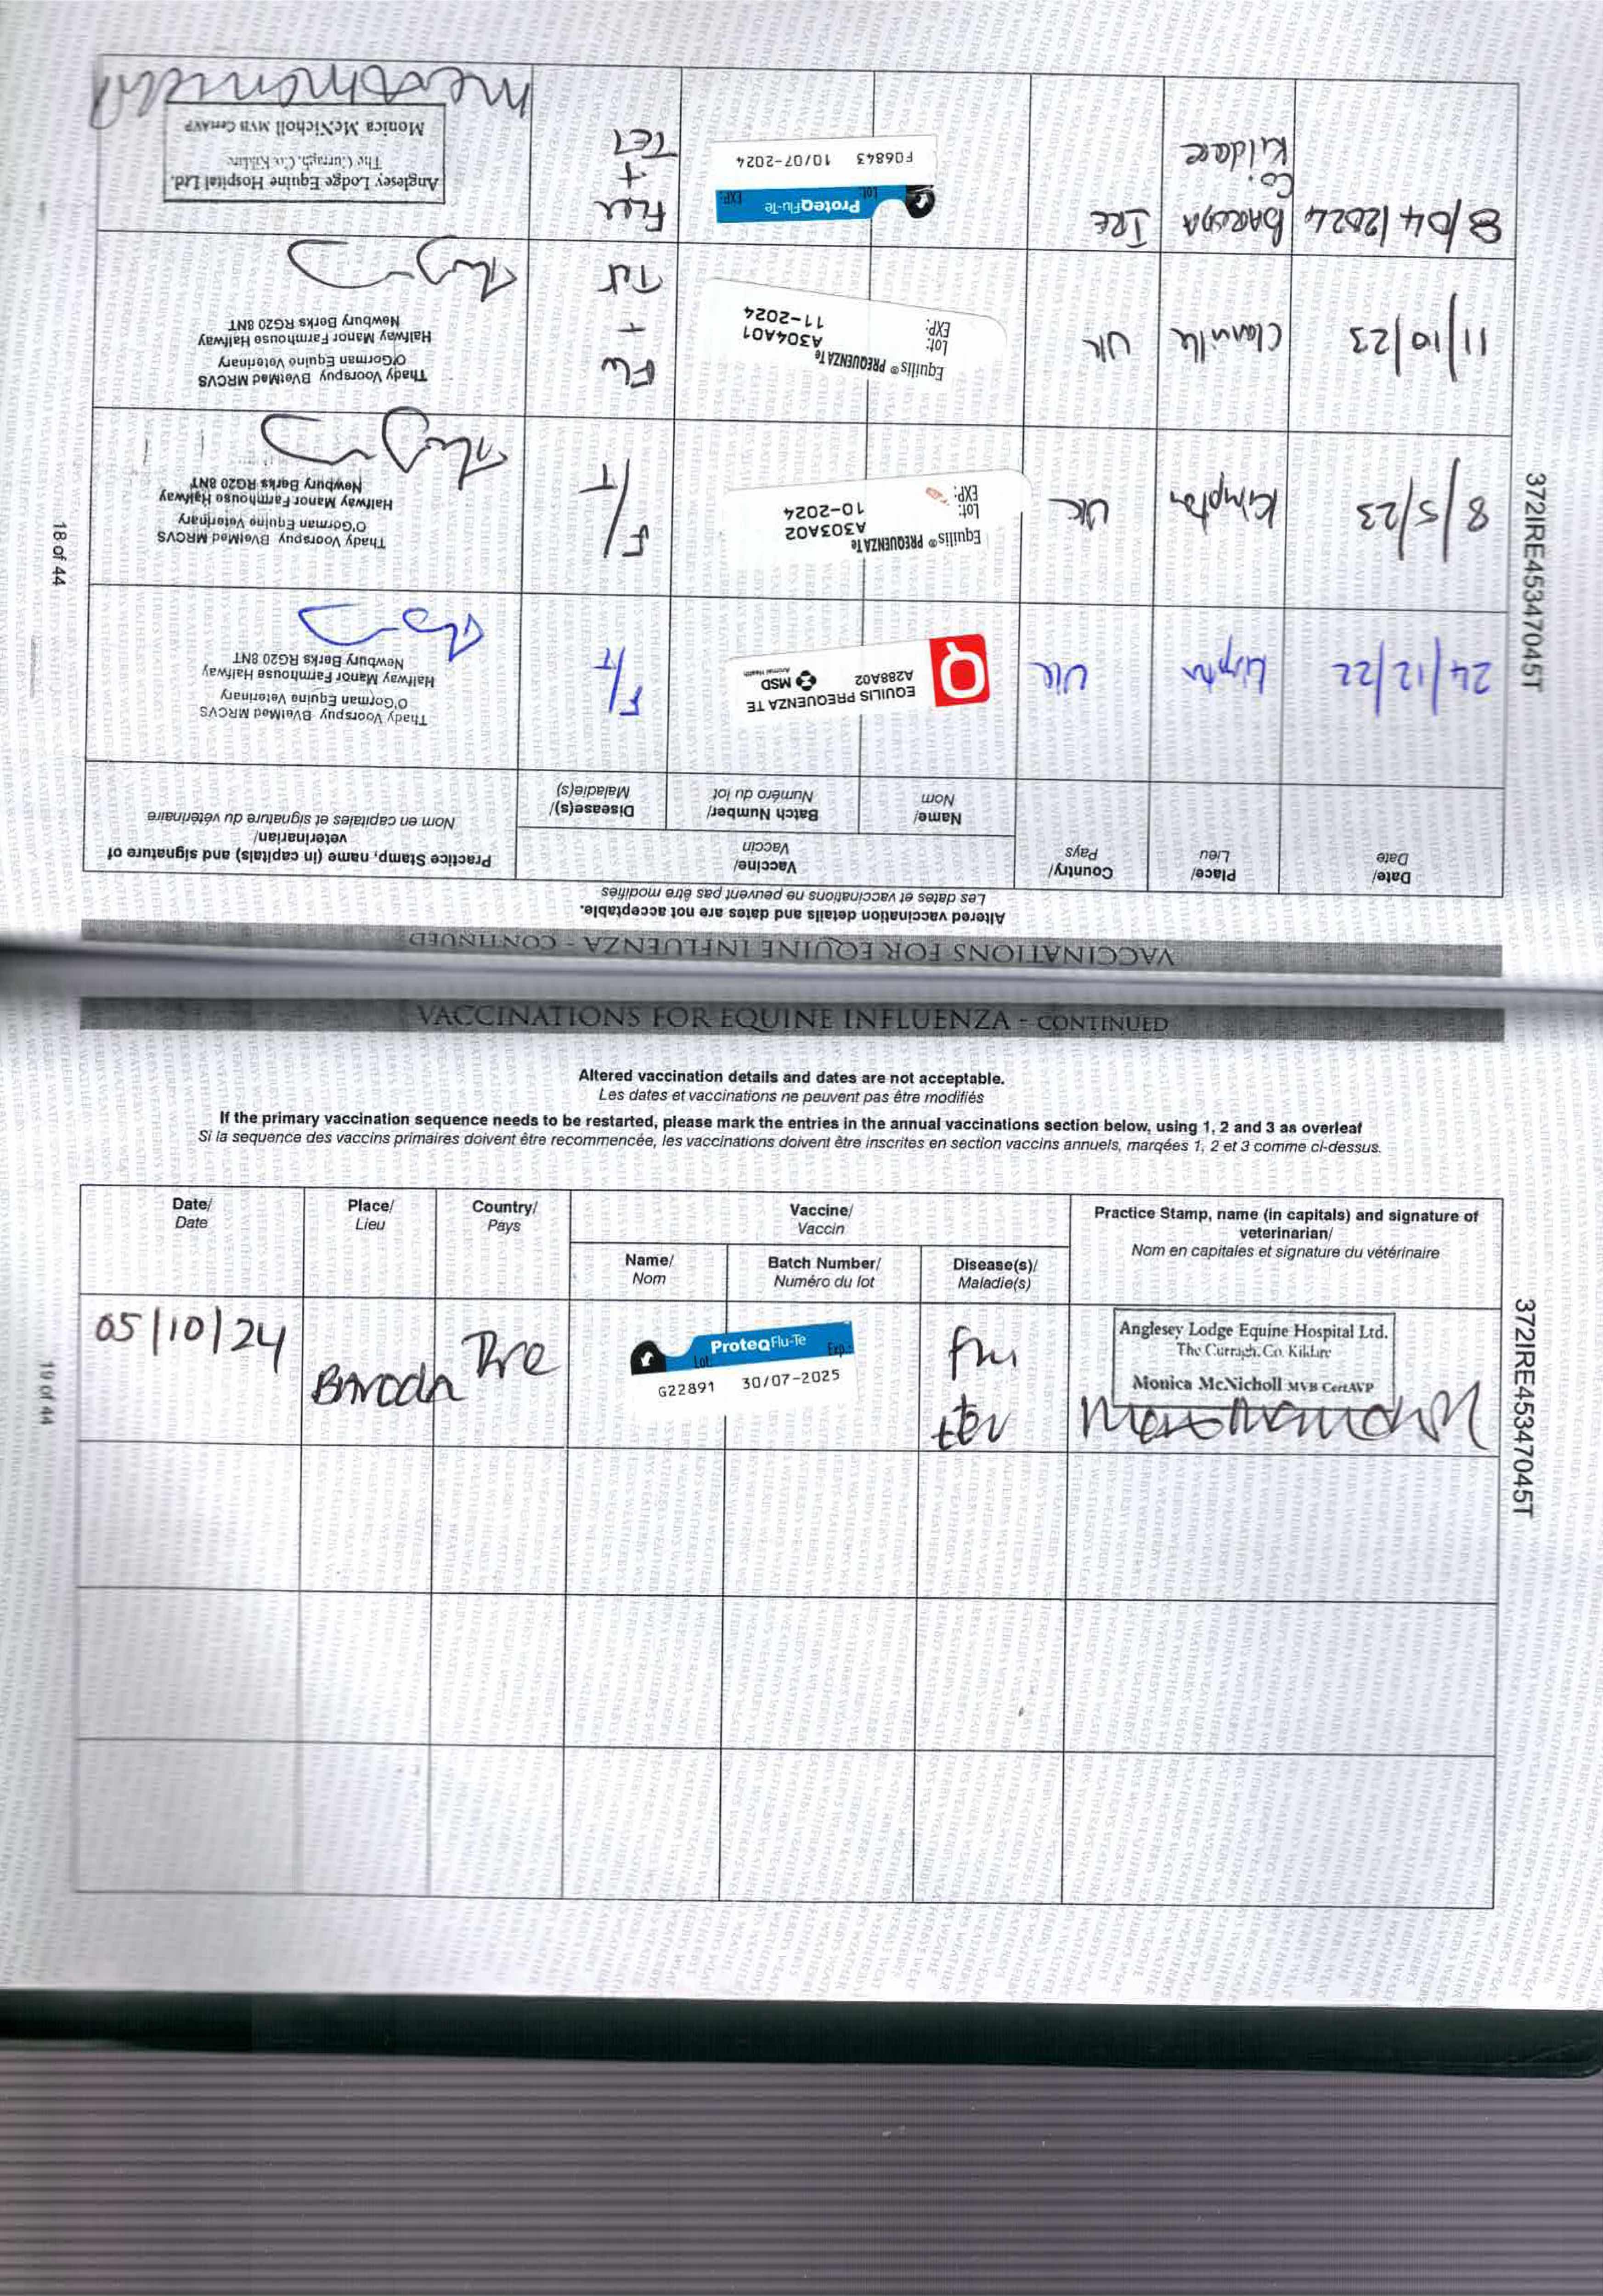 VACCINATIONS FOR EQUINE INFLUENZA - CONTINUED
Altered vaccination details and dates are not acceptable.
Les dates et vaccinations ne peuvent pas être modifiés
Date/
Date
Place/
Lieu
Country/
Pays
Vaccine/
Vaccin
Name/
Nom
Batch Number/
Numéro du lot
Disease(s)/
Maladie(s)
Practice Stamp, name (in capitals) and signature of
veterinarian/
Nom en capitales et signature du vétérinaire
24/12/22
UK
EQUILIS PREQUENZA TE
A288A02
MSD
Animal Health
F/T
Thady Voorspuy BVetMed MRCVS
O'Gorman Equine Veterinary
Halfway Manor Farmhouse Halfway
Newbury Berks RG20 8NT
8/5/23
Kimpton
UK
Equilis® PREQUENZA Te
Lot: A303A02
EXP: 10-2024
F/T
Thady Voorspuy BVetMed MRCVS
O'Gorman Equine Veterinary
Halfway Manor Farmhouse Halfway
Newbury Berks RG20 8NT
11/10/23
Clanville
UK
Equilis® PREQUENZA Te
Lot: A304A01
EXP: 11-2024
Flu
+
Tet
Thady Voorspuy BVetMed MRCVS
O'Gorman Equine Veterinary
Halfway Manor Farmhouse Halfway
Newbury Berks RG20 8NT
8/04/2024
BARODA
Co.
Kildare
IRE
ProteqFlu-Te
Lot: EXP:
F06843 10/07-2024
Flu
+
TET
Anglesey Lodge Equine Hospital Ltd.
The Curragh. Co. Kildare
Monica McNicholl MVB CertAVP
372IRE45347045T
18 of 44
VACCINATIONS FOR EQUINE INFLUENZA - CONTINUED
Altered vaccination details and dates are not acceptable.
Les dates et vaccinations ne peuvent pas être modifiés
If the primary vaccination sequence needs to be restarted, please mark the entries in the annual vaccinations section below, using 1, 2 and 3 as overleaf
Si la sequence des vaccins primaires doivent être recommencée, les vaccinations doivent être inscrites en section vaccins annuels, marqées 1, 2 et 3 comme ci-dessus.
Date/
Date
Place/
Lieu
Country/
Pays
Vaccine/
Vaccin
Name/
Nom
Batch Number/
Numéro du lot
Disease(s)/
Maladie(s)
Practice Stamp, name (in capitals) and signature of
veterinarian/
Nom en capitales et signature du vétérinaire
05/10/24
Baroda
Ire
ProteqFlu-Te
Lot: Exp.:
G22891 30/07-2025
flu
tet
Anglesey Lodge Equine Hospital Ltd.
The Curragh. Co. Kildare
Monica McNicholl MVB CertAVP
372IRE45347045T
19 of 44